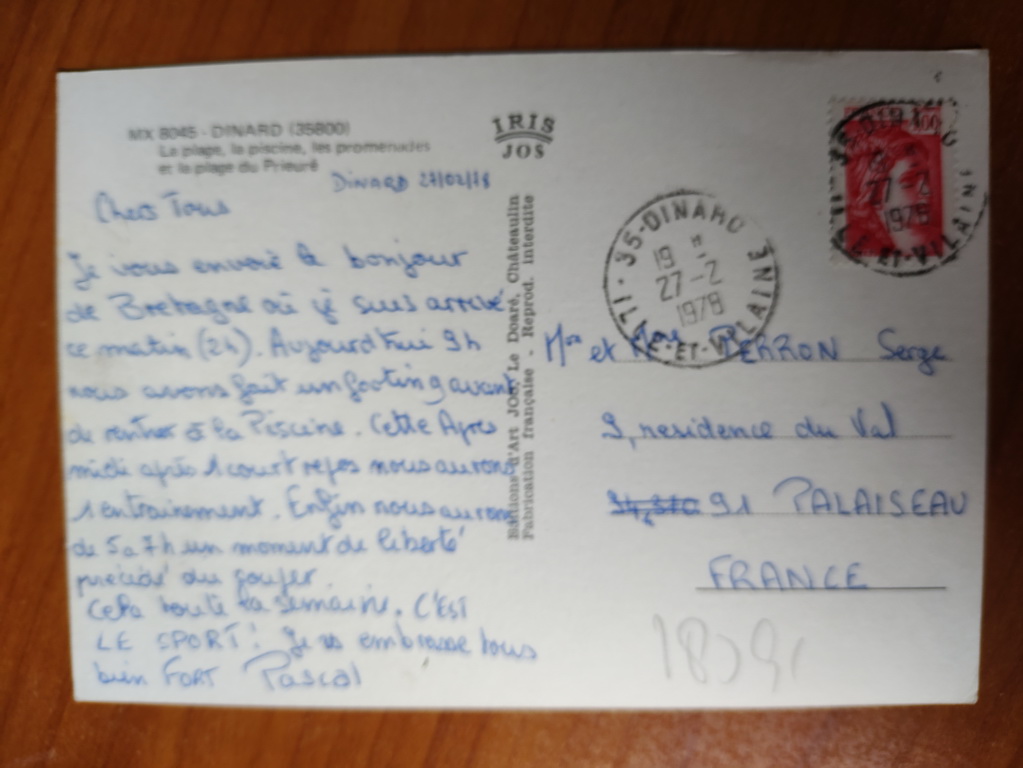 MX 8045 - DINARD (35800)
La plage, la piscine, les promenades
et la plage du Prieuré
IRIS
JOS
Dinard 27/02/78
Chers Tous
Je vous envoie le bonjour
de Bretagne où je suis arrivé
ce matin (2h). Aujourd'hui 9h
nous avons fait un footing avant
de rentrer à la Piscine. Cette Apres
midi après 1 court repos nous aurons
1 entrainement. Enfin nous aurons
de 5 a 7h un moment de liberté
précédé du gouter.
Cela toute la semaine. C'EST
LE SPORT! Je vs embrasse tous
bien FORT Pascal
Editions d'Art JOS, Le Doaré, Châteaulin
Fabrication française - Reprod. interdite
35-DINARD
19 H
27-2
1978
ILLE-ET-VILAINE
1,00
27-2
1978
ILLE-ET-VILAINE
Mr et Mme PERRON Serge
9, residence du Val
91 PALAISEAU
FRANCE